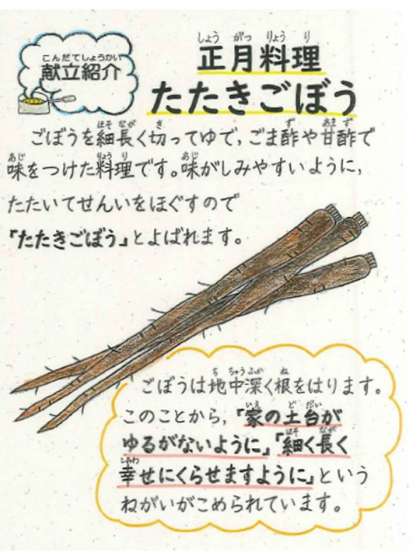 献立紹介
こんだてしょうかい
正月料理
しょうがつりょうり
たたきごぼう
ごぼうを細長く切ってゆで,ごま酢や甘酢で
味をつけた料理です。味がしみやすいように,
たたいてせんいをほぐすので
「たたきごぼう」とよばれます。
ごぼうは地中深く根をはります。
このことから,「家の土台が
ゆるがないように」「細く長く
幸せにくらせますように」という
ねがいがこめられています。